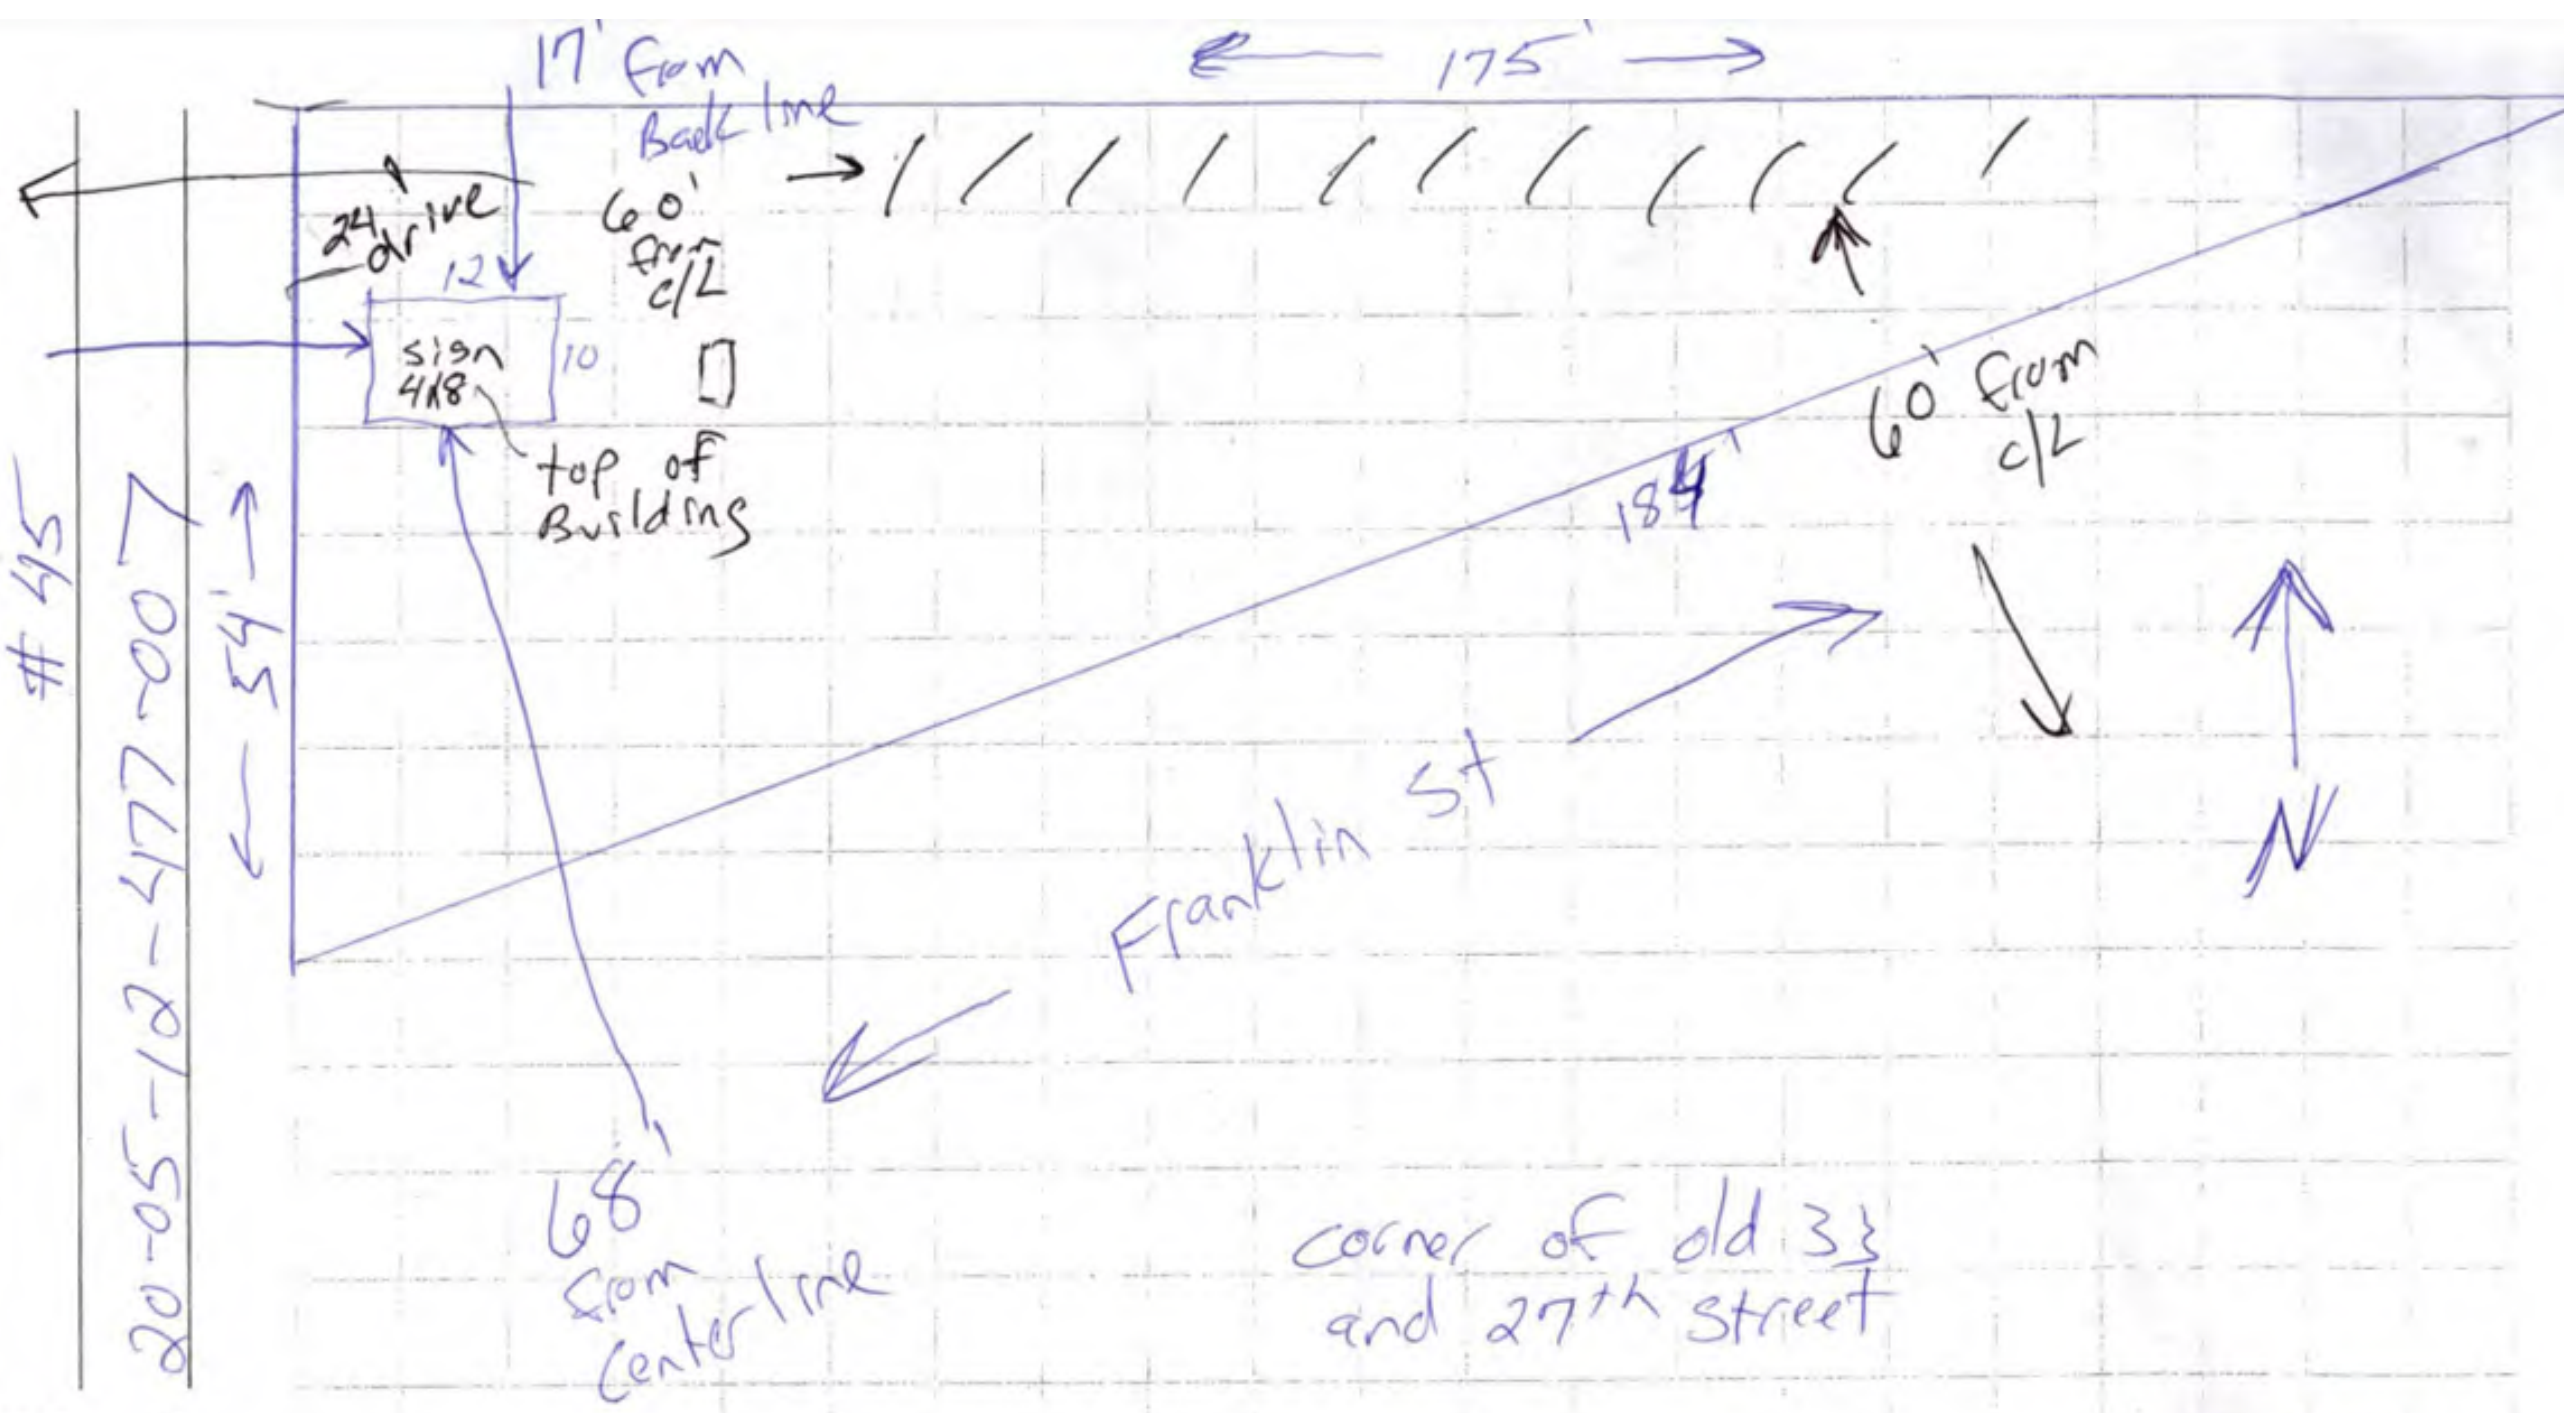 17' from
Back line
175'
24' drive
60'
from
c/L
12
10
sign
4x8
top of
Building
60' from
c/L
184'
# 45
20-05-12-477-007
54'
Franklin St
N
68'
from
centerline
corner of old 33
and 27th street